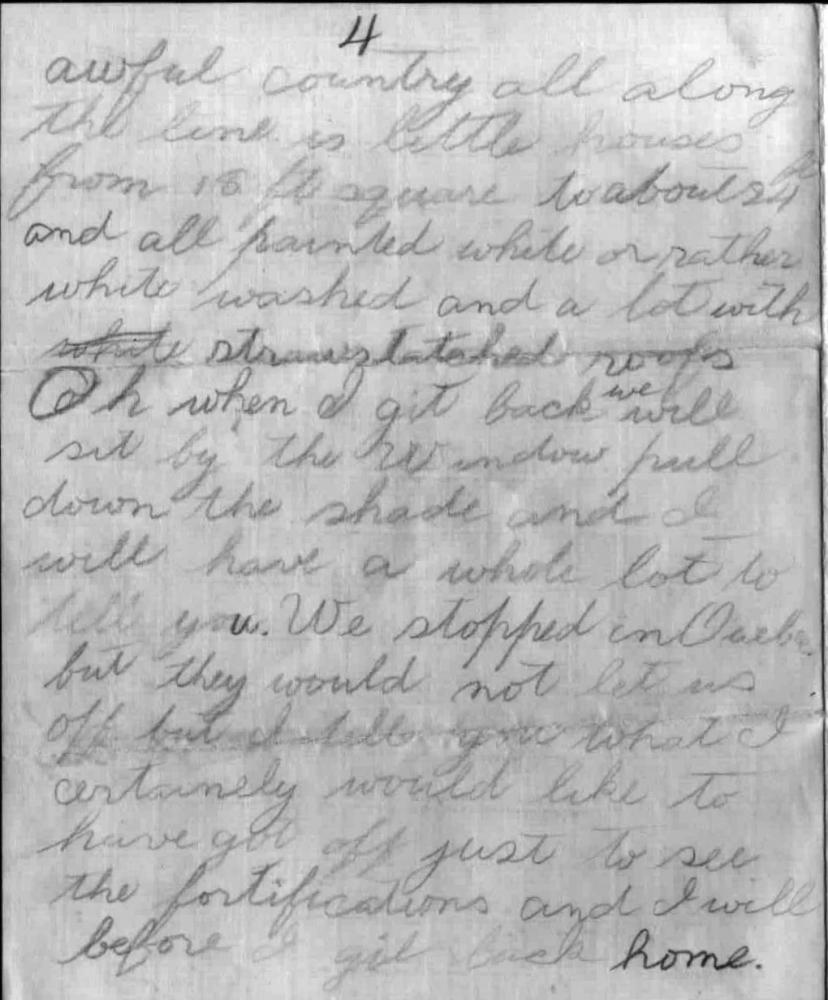 4
awful country all along
the line is little houses
from 18 ft square to about 24 ft
and all painted white or rather
white washed and a lot with
white straw tatched roofs
Oh when I git back we will
sit by the window pull
down the shade and I
will have a whole lot to
tell you. We stopped in Quebec.
but they would not let us
off but I tell you what I
certainely would like to
have got off just to see
the fortifications and I will
before I git back home.